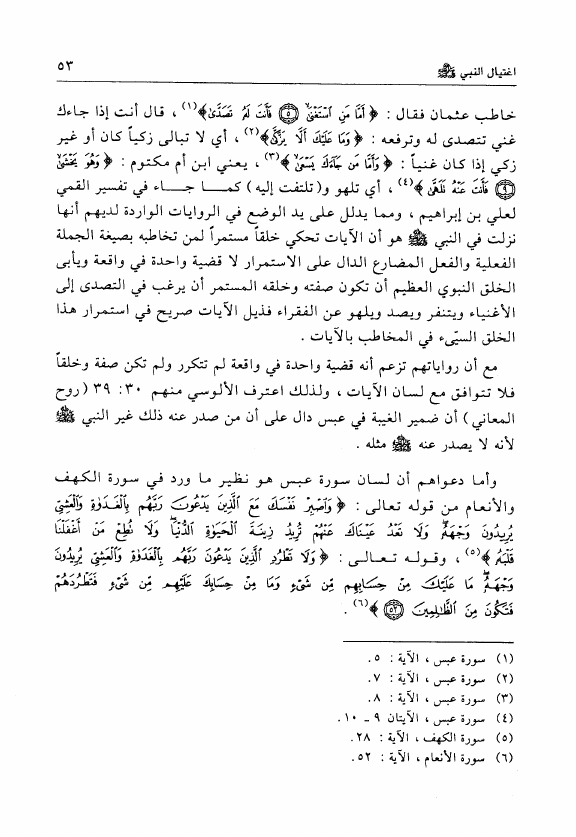 اغتيال النبي ﷺ ٥٣
خاطب عثمان فقال : ﴿ أَمَّا مَنِ ٱسْتَغْنَىٰ ۝٥ فَأَنتَ لَهُۥ تَصَدَّىٰ ﴾(١) ، قال أنت إذا جاءك
غني تتصدى له وترفعه : ﴿ وَمَا عَلَيْكَ أَلَّا يَزَّكَّىٰ ﴾(٢) ، أي لا تبالى زكياً كان أو غير
زكي إذا كان غنياً : ﴿ وَأَمَّا مَن جَآءَكَ يَسْعَىٰ ﴾(٣) ، يعني ابن أم مكتوم : ﴿ وَهُوَ يَخْشَىٰ
۝٩ فَأَنتَ عَنْهُ تَلَهَّىٰ ﴾(٤) ، أي تلهو و(تلتفت إليه) كمـا جـاء في تفسير القمي
لعلي بن إبراهيم ، ومما يدلل على يد الوضع في الروايات الواردة لديهم أنها
نزلت في النبي ﷺ هو أن الآيات تحكي خلقاً مستمراً لمن تخاطبه بصيغة الجملة
الفعلية والفعل المضارع الدال على الاستمرار لا قضية واحدة في واقعة ويأبى
الخلق النبوي العظيم أن تكون صفته وخلقه المستمر أن يرغب في التصدى إلى
الأغنياء ويتنفر ويصد ويلهو عن الفقراء فذيل الآيات صريح في استمرار هذا
الخلق السيّىء في المخاطب بالآيات .
مع أن رواياتهم تزعم أنه قضية واحدة في واقعة لم تتكرر ولم تكن صفة وخلقاً
فلا تتوافق مع لسان الآيات ، ولذلك اعترف الألوسي منهم ٣٠ : ٣٩ (روح
المعاني) أن ضمير الغيبة في عبس دال على أن من صدر عنه ذلك غير النبي ﷺ
لأنه لا يصدر عنه ﷺ مثله .
وأما دعواهم أن لسان سورة عبس هو نظير ما ورد في سورة الكهف
والأنعام من قوله تعالى : ﴿ وَٱصْبِرْ نَفْسَكَ مَعَ ٱلَّذِينَ يَدْعُونَ رَبَّهُم بِٱلْغَدَوٰةِ وَٱلْعَشِيِّ
يُرِيدُونَ وَجْهَهُۥ وَلَا تَعْدُ عَيْنَاكَ عَنْهُمْ تُرِيدُ زِينَةَ ٱلْحَيَوٰةِ ٱلدُّنْيَا وَلَا تُطِعْ مَنْ أَغْفَلْنَا
قَلْبَهُۥ ﴾(٥) ، وقـولـه تـعـالـى : ﴿ وَلَا تَطْرُدِ ٱلَّذِينَ يَدْعُونَ رَبَّهُم بِٱلْغَدَوٰةِ وَٱلْعَشِيِّ يُرِيدُونَ
وَجْهَهُۥ مَا عَلَيْكَ مِنْ حِسَابِهِم مِّن شَيْءٍ وَمَا مِنْ حِسَابِكَ عَلَيْهِم مِّن شَيْءٍ فَتَطْرُدَهُمْ
فَتَكُونَ مِنَ ٱلظَّٰلِمِينَ ۝٥٢ ﴾(٦) .
(١) سورة عبس ، الآية : ٥ .
(٢) سورة عبس ، الآية : ٧ .
(٣) سورة عبس ، الآية : ٨ .
(٤) سورة عبس ، الآيتان ٩ ـ ١٠ .
(٥) سورة الكهف ، الآية : ٢٨ .
(٦) سورة الأنعام ، الآية : ٥٢ .